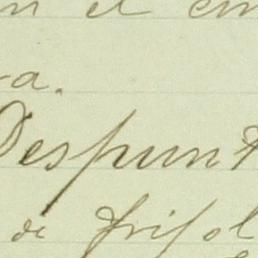 el
a.
Despun
de frisol